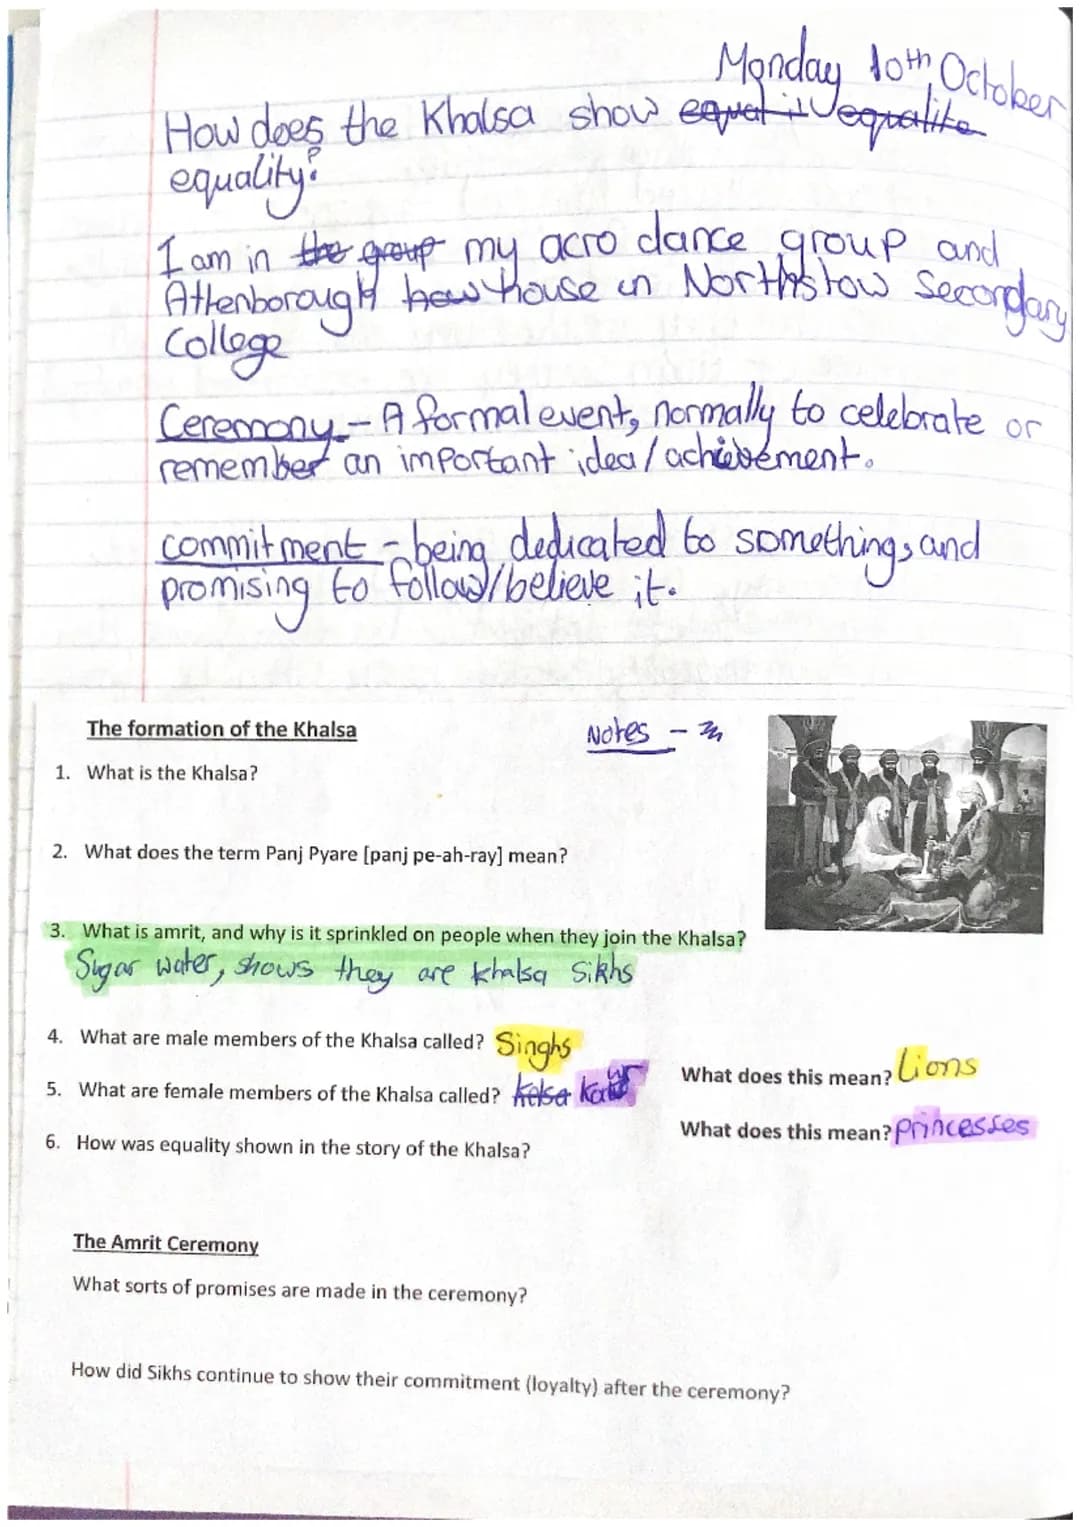 Monday 10th October
How does the Khalsa show equalit equalite
equality?
I am in the group my acro dance group and
Attenborough how house in Northstow Secondary
College
Ceremony - A formal event, normally to celebrate or
remember an important idea/achievement.
commitment - being dedicated to something, and
promising to follow/believe it.
The formation of the Khalsa
Notes -
1. What is the Khalsa?
2. What does the term Panj Pyare [panj pe-ah-ray] mean?
3. What is amrit, and why is it sprinkled on people when they join the Khalsa?
Sugar water, shows they are khalsa Sikhs
4. What are male members of the Khalsa called? Singhs
What does this mean? Lions
5. What are female members of the Khalsa called? Kaur
What does this mean? princesses
6. How was equality shown in the story of the Khalsa?
The Amrit Ceremony
What sorts of promises are made in the ceremony?
How did Sikhs continue to show their commitment (loyalty) after the ceremony?